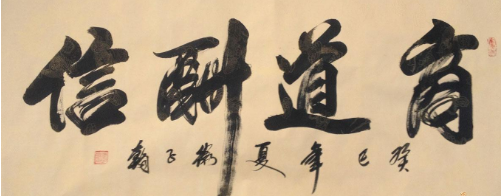 商道酬信
癸巳年夏